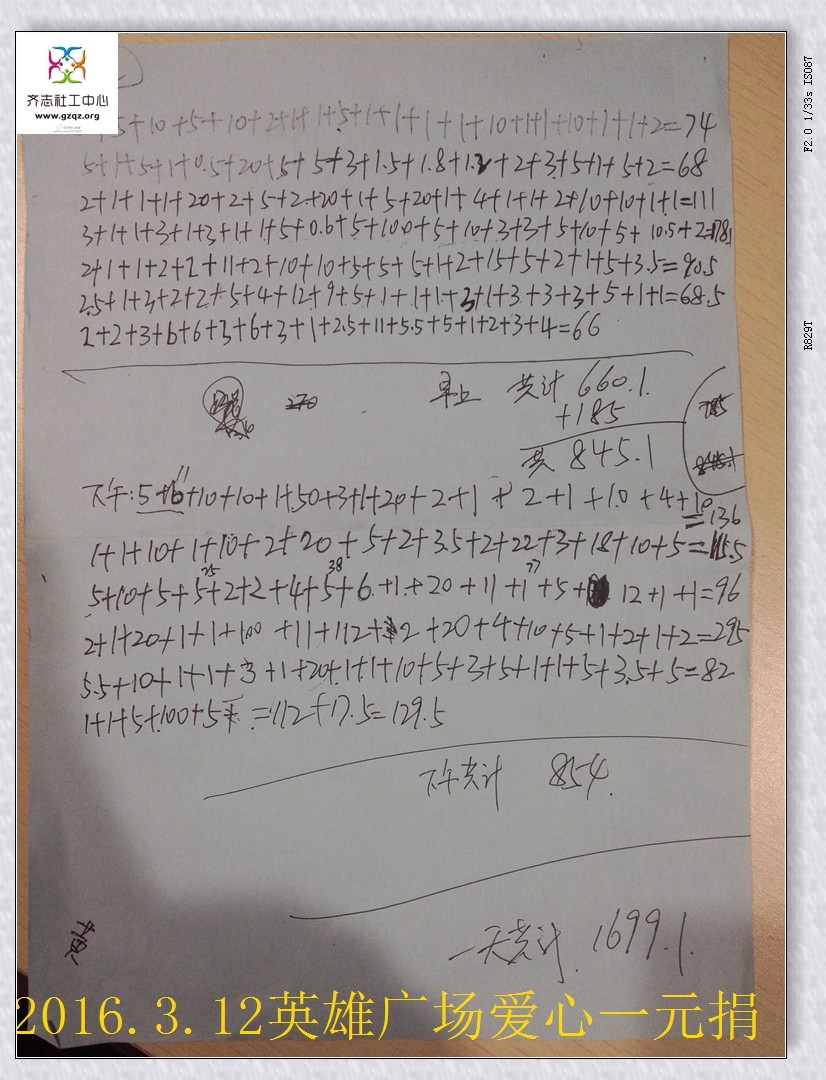 齐志社工中心
www.gzqz.org
F2.0 1/33s ISO87
R829T
5+10+5+10+2+1+1+5+1+1+1+1+10+1+1+10+1+1+2=74
5+1+5+1+0.5+20+5+5+3+1.5+1.8+1.2+2+3+5+1+5+2=68
2+1+1+1+20+2+5+2+20+1+5+20+1+4+1+1+2+10+10+1+1=111
3+1+1+3+1+3+1+1+5+0.6+5+100+5+10+3+3+5+10+5+10.5+2=178.1
2+1+1+2+2+11+2+10+10+5+5+5+1+2+15+5+2+1+5+3.5=90.5
2.5+1+3+2+2+5+4+12+9+5+1+1+1+3+1+3+3+3+5+1+1=68.5
2+2+3+6+6+3+6+3+1+2.5+11+5.5+5+1+2+3+4=66
早上 共计 660.1
+185
共 845.1
下午:5+6+10+10+1+50+3+1+20+2+1+2+1+10+4+10=136
11
1+1+10+1+10+2+20+5+2+3.5+2+22+3+18+10+5=115.5
25 38 77
5+10+5+5+2+2+4+5+6+1+20+11+1+5+12+1+1=96
2+1+20+1+1+100+11+112+2+20+4+10+5+1+2+1+2=295
5.5+10+1+1+3+1+20+1+1+10+5+3+5+1+1+5+3.5+5=82
1+1+5+100+5=112+17.5=129.5
下午共计 854.
一天共计 1699.1
2016.3.12英雄广场爱心一元捐